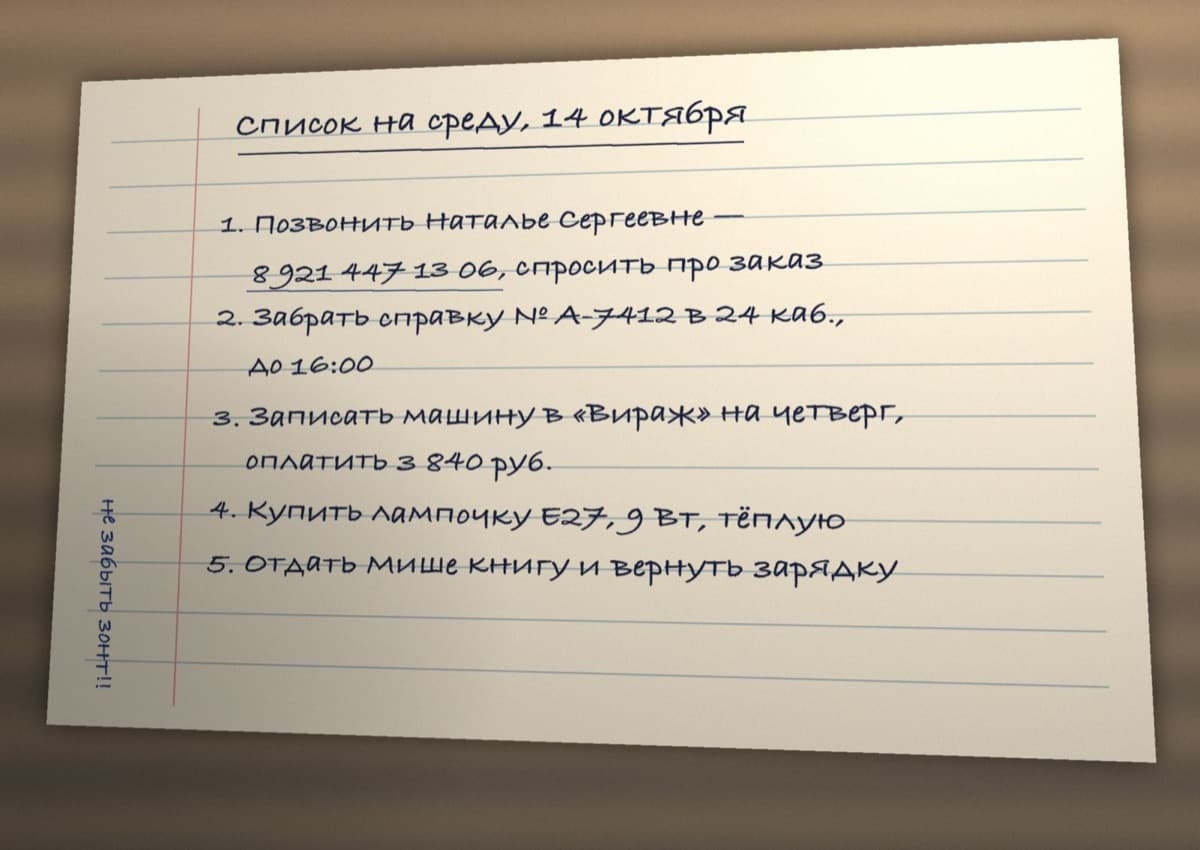 Список на среду, 14 октября
1. Позвонить Наталье Сергеевне —
8 921 447 13 06, спросить про заказ
2. Забрать справку № А-7412 в 24 каб.,
до 16:00
3. Записать машину в «Вираж» на четверг,
оплатить 3 840 руб.
4. Купить лампочку E27, 9 Вт, тёплую
5. Отдать Мише книгу и вернуть зарядку
не забыть зонт!!